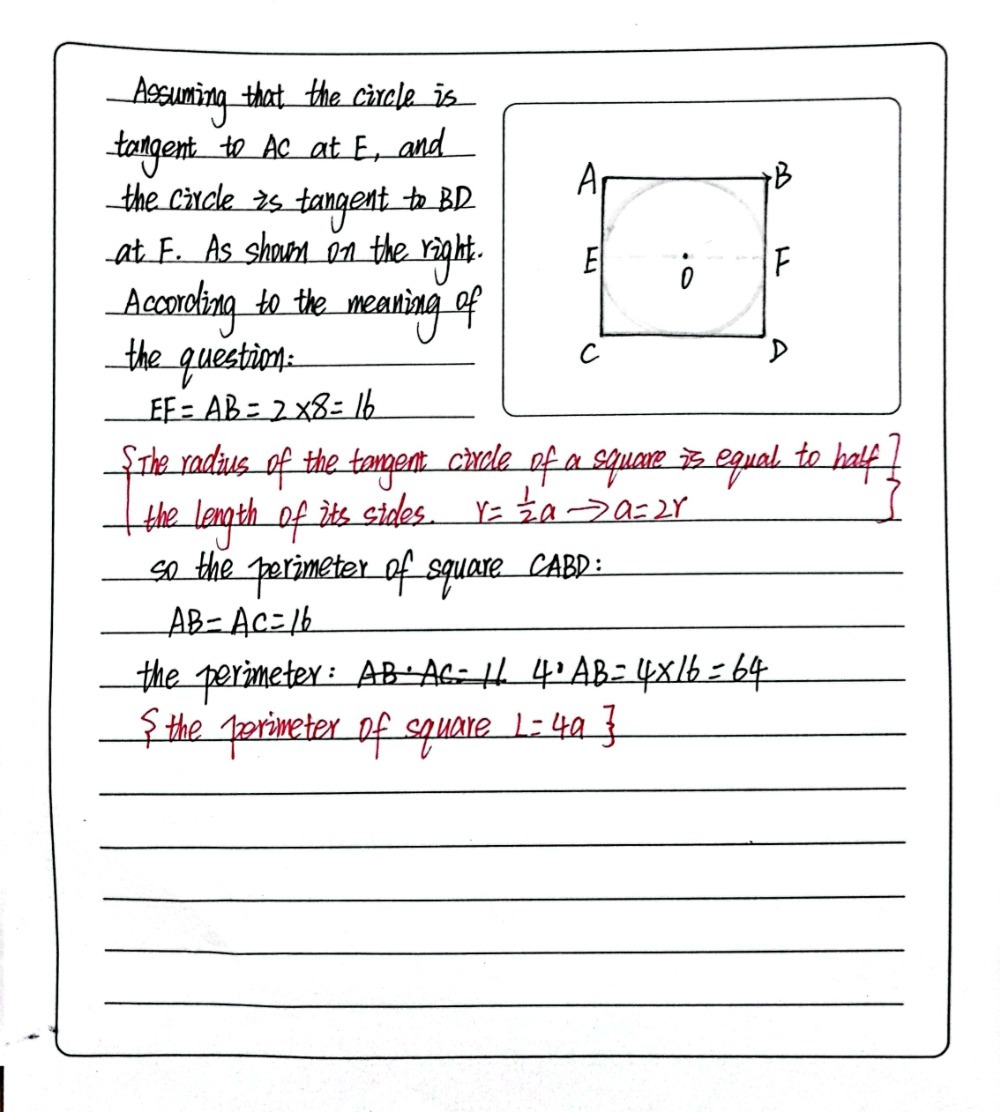 Assuming that the circle is
tangent to AC at E, and
the circle is tangent to BD
at F. As shown on the right.
According to the meaning of
the question:
EF = AB = 2 × 8 = 16
{The radius of the tangent circle of a square is equal to half
the length of its sides. r = 1/2 a → a = 2r}
so the perimeter of square CABD:
AB = AC = 16
the perimeter: ~~AB · AC = 16~~ 4 · AB = 4 × 16 = 64
{the perimeter of square L = 4a}
A B
E F
O
C D